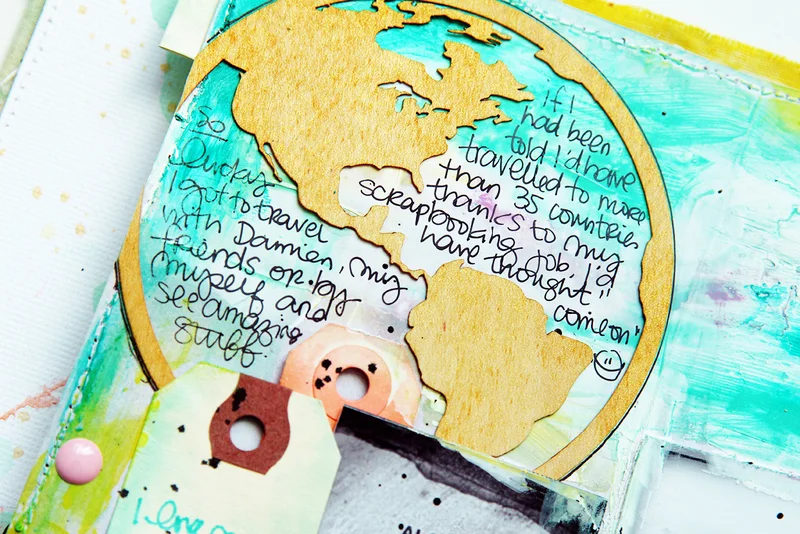 If I
had been
told I'd have
travelled to more
than 35 countries
thanks to my
scrapbooking job, I'd
have thought "
come on"
so
lucky
I got to travel
with Damien, my
friends or by
myself and
see amazing
stuff.